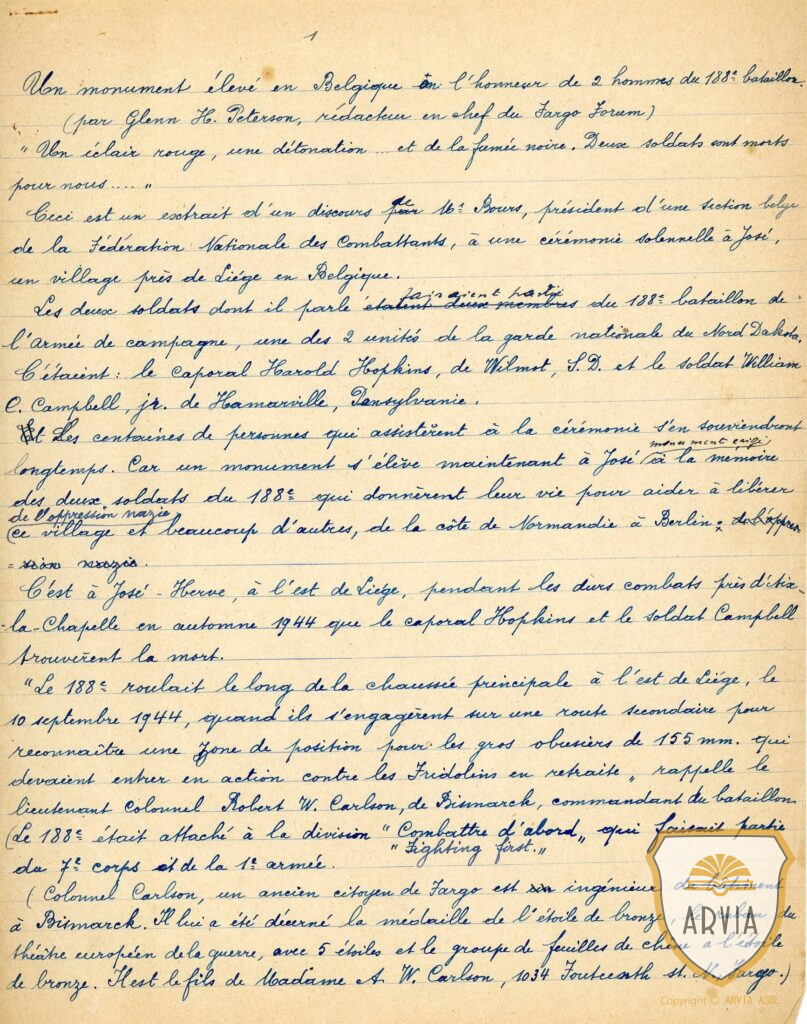 1
Un monument élevé en Belgique en l'honneur de 2 hommes du 188e bataillon.
(par Glenn H. Peterson, rédacteur en chef du Fargo Forum)
"Un éclair rouge, une détonation ... et de la fumée noire. Deux soldats sont morts
pour nous ....."
Ceci est un extrait d'un discours par de Mr Bours, président d'une section belge
de la Fédération Nationale des Combattants, à une cérémonie solennelle à José,
un village près de Liége en Belgique.
Les deux soldats dont il parle étaient deux membres faisaient partie du 188e bataillon de
l'armée de campagne, une des 2 unités de la garde nationale du Nord Dakota.
C'étaient : le caporal Harold Hopkins, de Wilmot, S.D. et le soldat William
C. Campbell, jr. de Hamarville, Pensylvanie.
Et Les centaines de personnes qui assistèrent à la cérémonie s'en souviendront
longtemps. Car un monument s'élève maintenant à José monument érigé à la mémoire
des deux soldats du 188e qui donnèrent leur vie pour aider à libérer
de l'oppression nazie
ce village et beaucoup d'autres, de la côte de Normandie à Berlin. de l'oppres
sion nazie.
C'est à José-Herve, à l'est de Liége, pendant les durs combats près d'Aix-
la-Chapelle en automne 1944 que le caporal Hopkins et le soldat Campbell
trouvèrent la mort.
"Le 188e roulait le long de la chaussée principale à l'est de Liége, le
10 septembre 1944, quand ils s'engagèrent sur une route secondaire pour
reconnaître une zone de position pour les gros obusiers de 155 mm. qui
devaient entrer en action contre les Fridolins en retraite" rappelle le
lieutenant Colonnel Robert W. Carlson, de Bismarck, commandant du bataillon
(Le 188e était attaché à la division "Combattre d'abord" qui faisait partie
"Fighting first."
du 7e corps et de la 1e armée.
(Colonnel Carlson, un ancien citoyen de Fargo est un ingénieur du bâtiment
à Bismarck. Il lui a été décerné la médaille de l'étoile de bronze, le ruban du
théâtre européen de la guerre, avec 5 étoiles et le groupe de feuilles de chêne à l'étoile
de bronze. Il est le fils de Madame A. W. Carlson, 1034 Fouteenth st. N. Fargo.)
ARVIA
Copyright © ARVIA ASBL